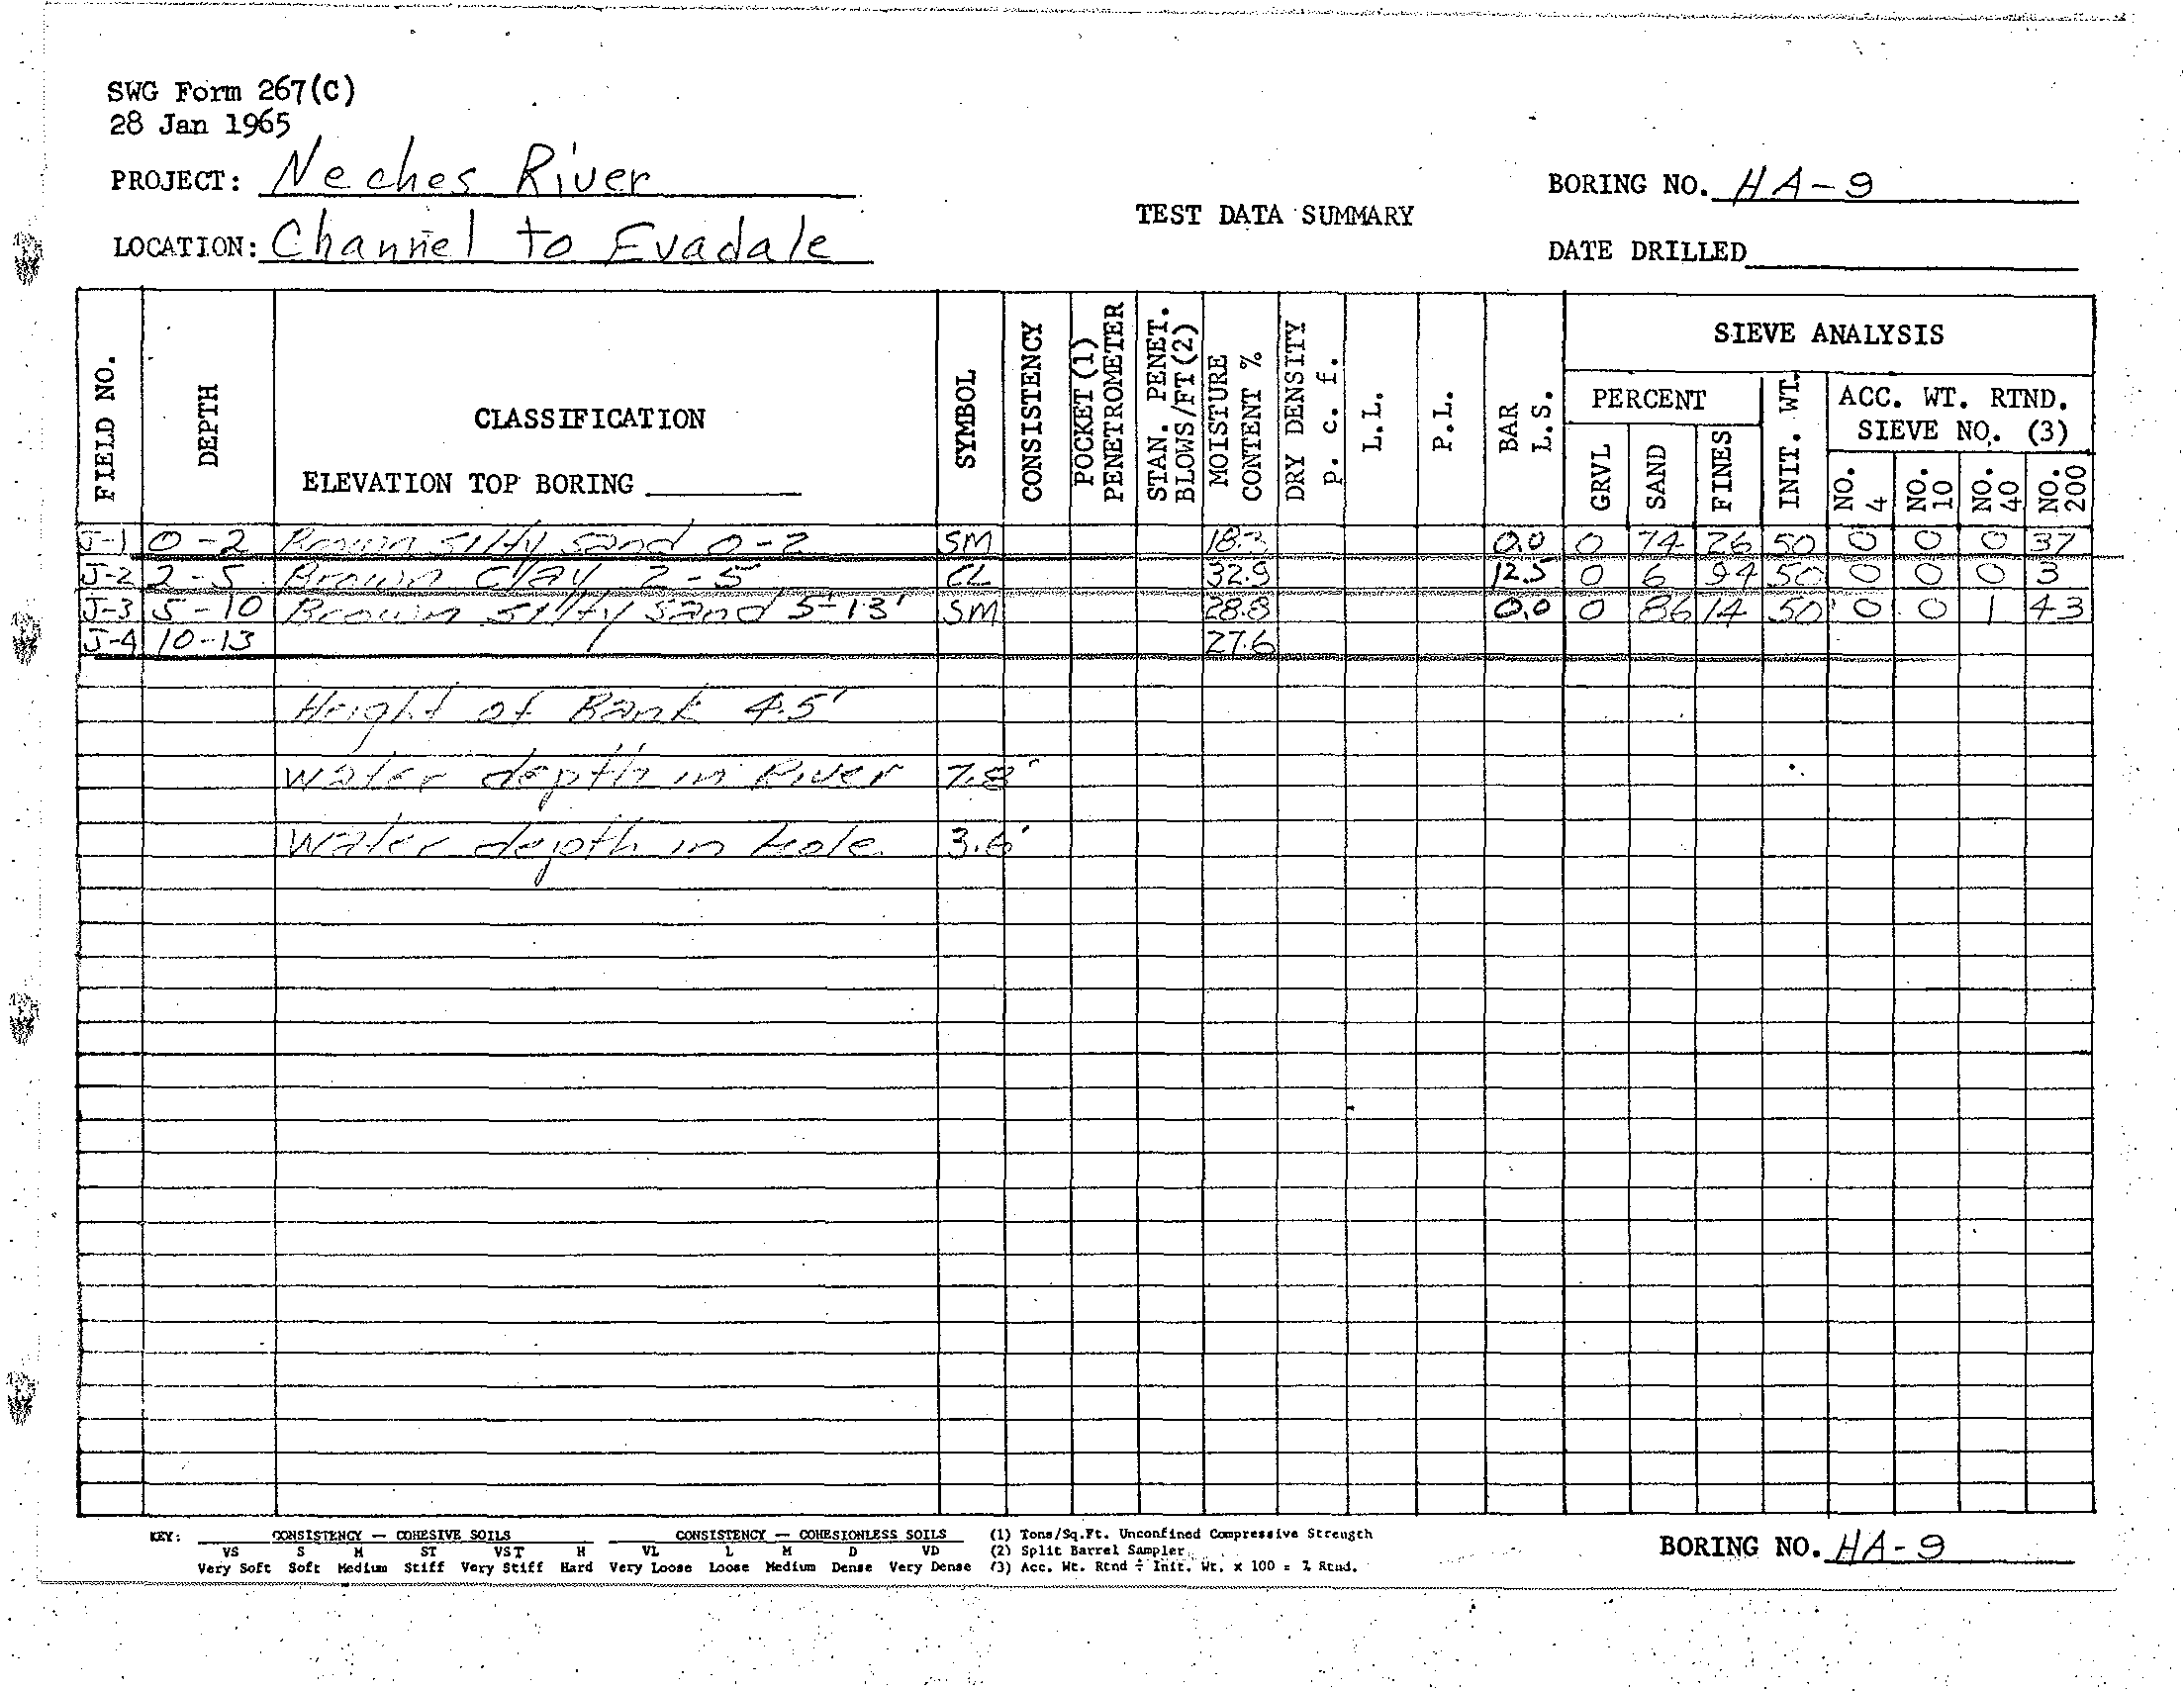 SWG Form 267(C)
28 Jan 1965
PROJECT: Neches River
LOCATION: Channel to Evadale
TEST DATA SUMMARY
BORING NO. HA-9
DATE DRILLED
FIELD NO.
DEPTH
CLASSIFICATION
ELEVATION TOP BORING
SYMBOL
CONSISTENCY
POCKET (1)
PENETROMETER
STAN. PENET.
BLOWS/FT (2)
MOISTURE
CONTENT %
DRY DENSITY
p. c. f.
L.L.
P.L.
BAR
L.S.
SIEVE ANALYSIS
PERCENT
GRVL
SAND
FINES
INIT. WT.
ACC. WT. RTND.
SIEVE NO. (3)
NO. 4
NO. 10
NO. 40
NO. 200
J-1 0-2 Brown silty sand 0-2 SM 18.3 0.0 0 74 26 50 0 0 0 37
J-2 2-5 Brown clay 2-5 CL 32.9 12.5 0 6 94 50 0 0 0 3
J-3 5-10 Brown silty sand 5-13' SM 28.8 0.0 0 86 14 50 0 0 1 43
J-4 10-13 27.6
Height of Bank 4.5'
Water depth in River 7.8'
Water depth in hole 3.6'
KEY: CONSISTENCY — COHESIVE SOILS CONSISTENCY — COHESIONLESS SOILS
VS S M ST VST H VL L M D VD
Very Soft Soft Medium Stiff Very Stiff Hard Very Loose Loose Medium Dense Very Dense
(1) Tons/Sq.Ft. Unconfined Compressive Strength
(2) Split Barrel Sampler
(3) Acc. Wt. Rtnd ÷ Init. Wt. x 100 = % Rtnd.
BORING NO. HA-9